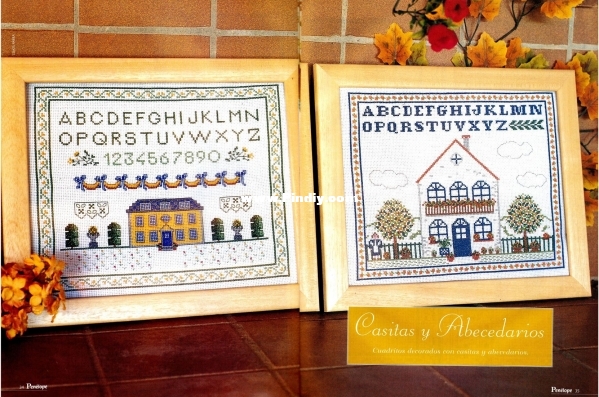 ABCDEFGHIJKLMN
OPQRSTUVWXYZ
1234567890
ABCDEFGHIJKLMN
OPQRSTUVWXYZ
Casitas y Abecedarios
Cuadritos decorados con casitas y abecedarios.
Penélope
Penélope 35